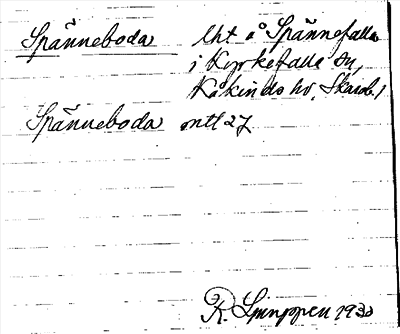 Spänneboda Lht å Spännefalla
i Kyrkefalla sn,
Kåkinds hd, Skarab. l
Spänneboda mtl 27
R. Ljunggren 1930